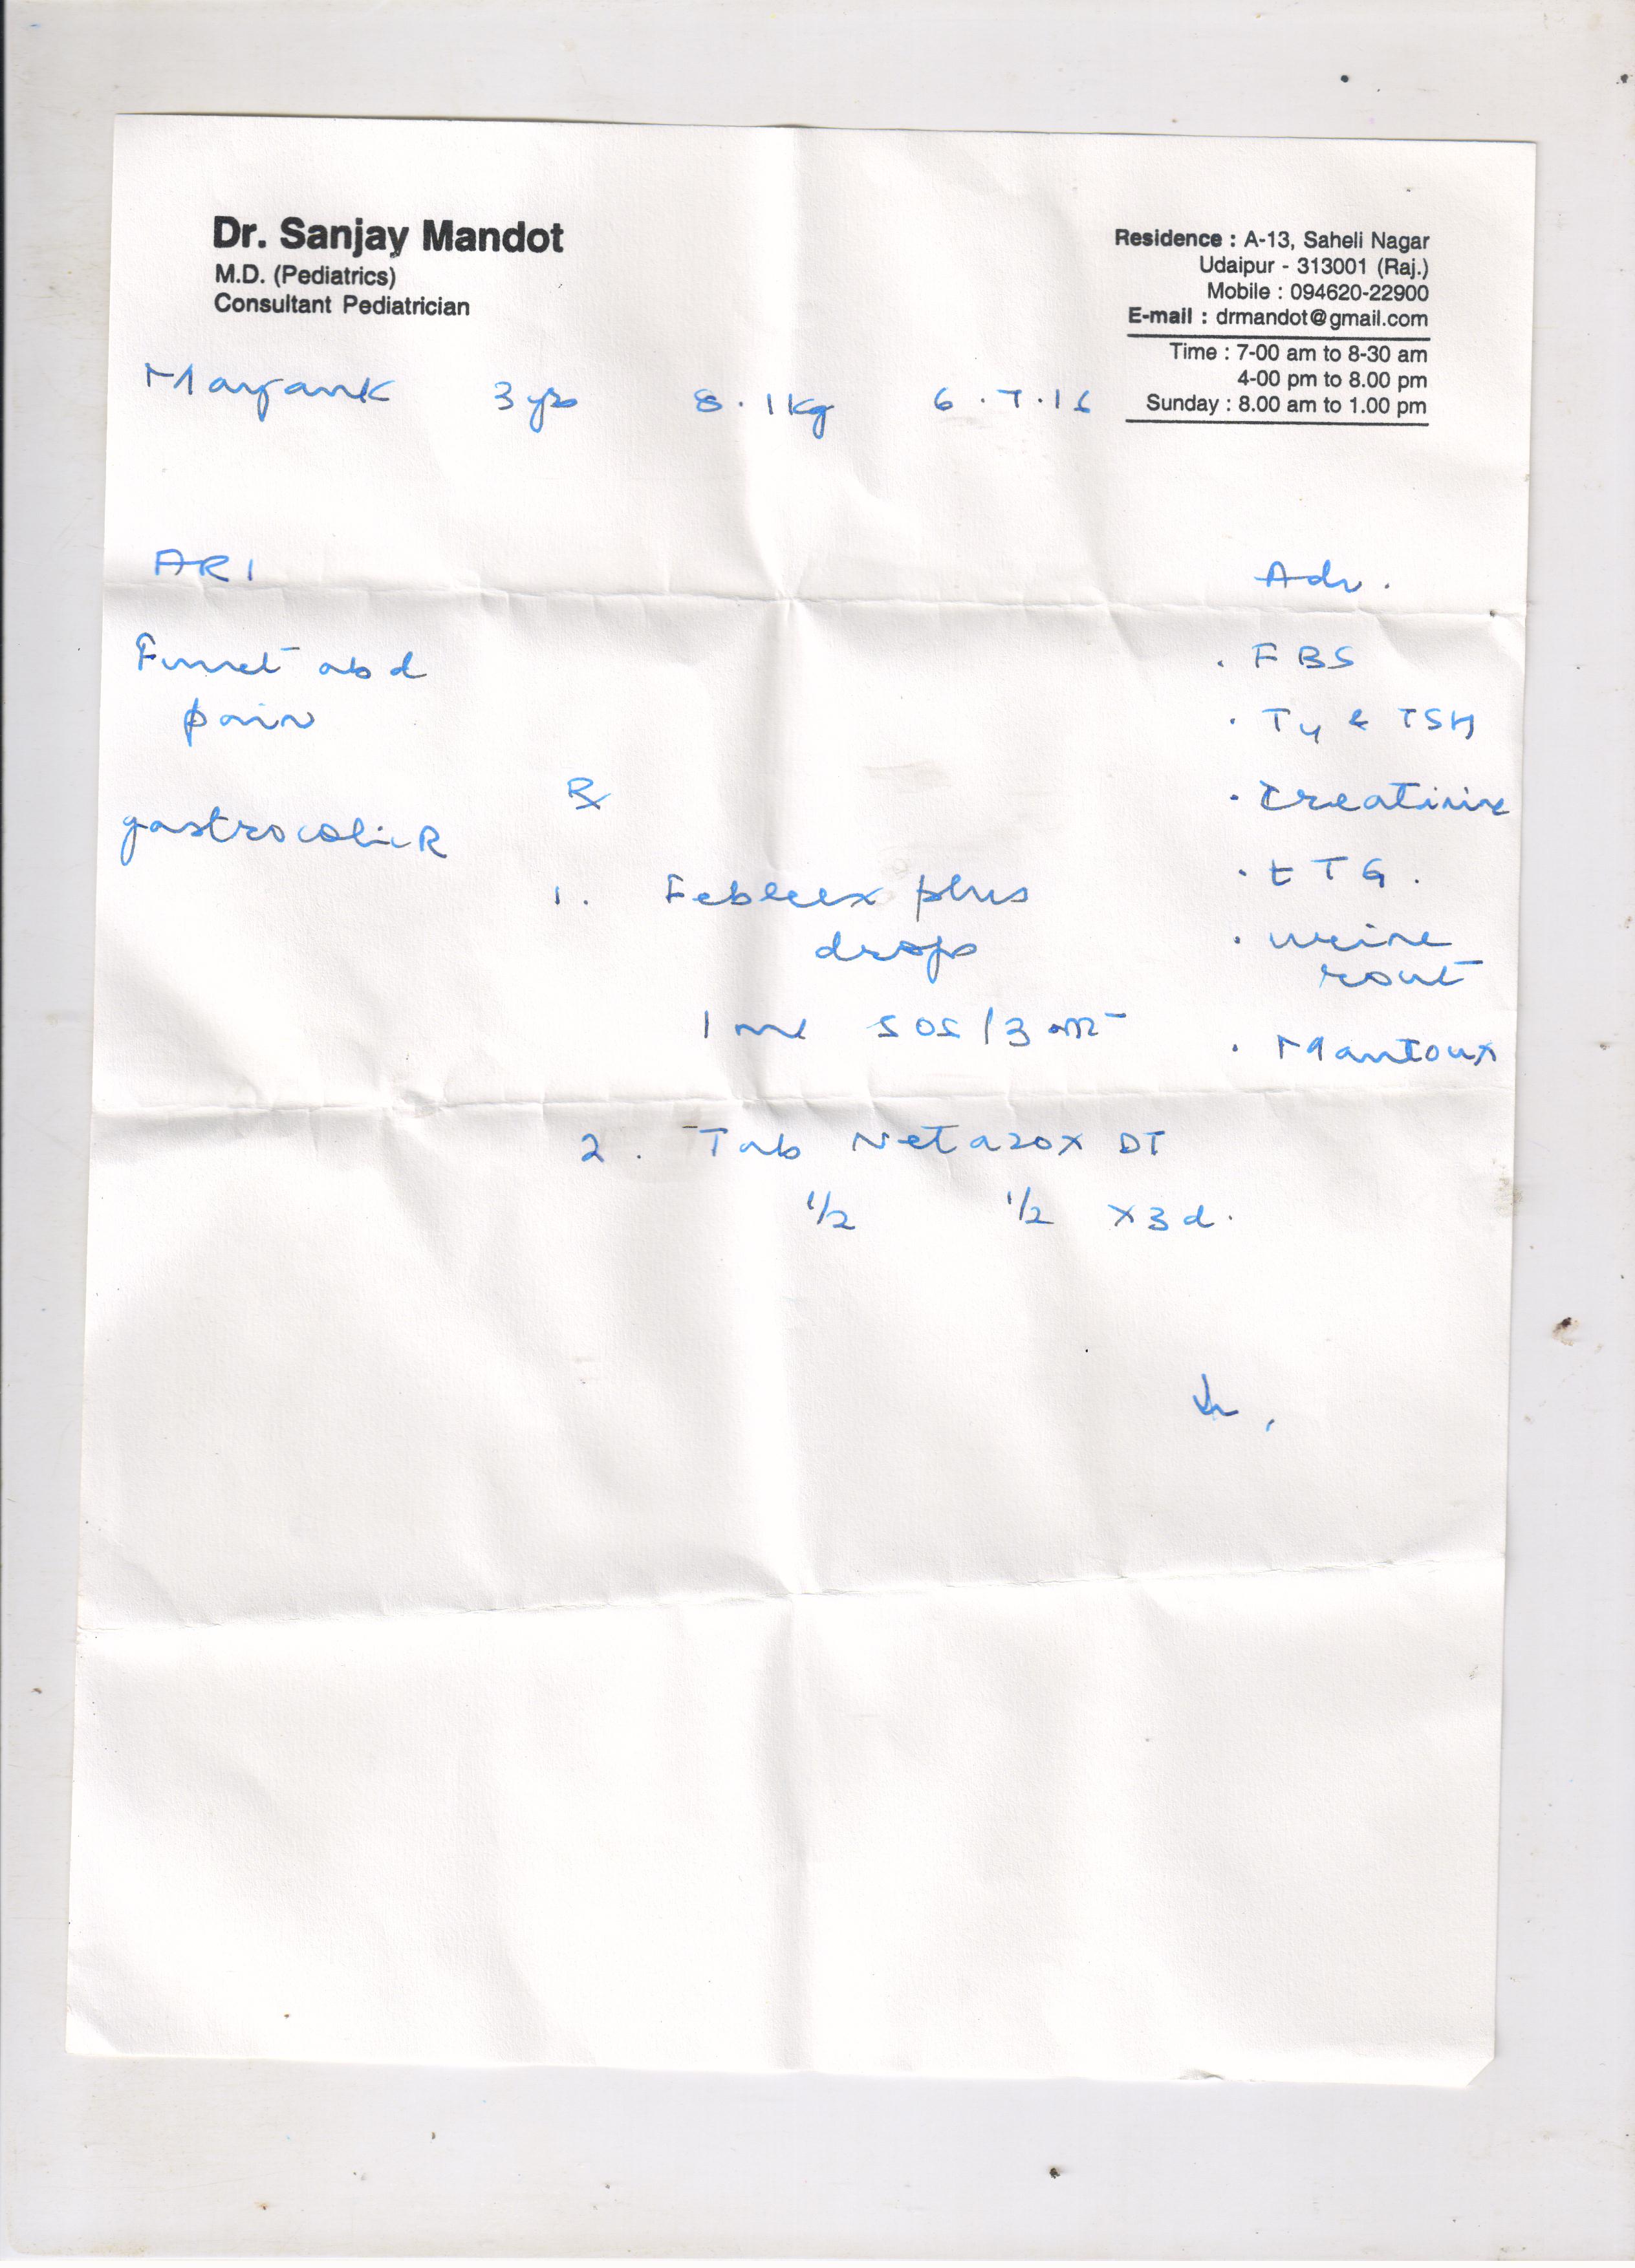 Dr. Sanjay Mandot
M.D. (Pediatrics)
Consultant Pediatrician
Residence : A-13, Saheli Nagar
Udaipur - 313001 (Raj.)
Mobile : 094620-22900
E-mail : drmandot@gmail.com
Time : 7-00 am to 8-30 am
4-00 pm to 8.00 pm
Sunday : 8.00 am to 1.00 pm
Mayank 3 yrs 8.1 kg 6.7.16
ARI
Funct abd
pain
gastrocolic R
Adv.
. FBS
. T4 & TSH
. creatinine
. tTG.
. urine
rout
. Mantoux
Rx
1. Febrex plus
drops
1 ml SOS / 3
2. Tab Netazox DT
1/2 1/2 x 3 d.